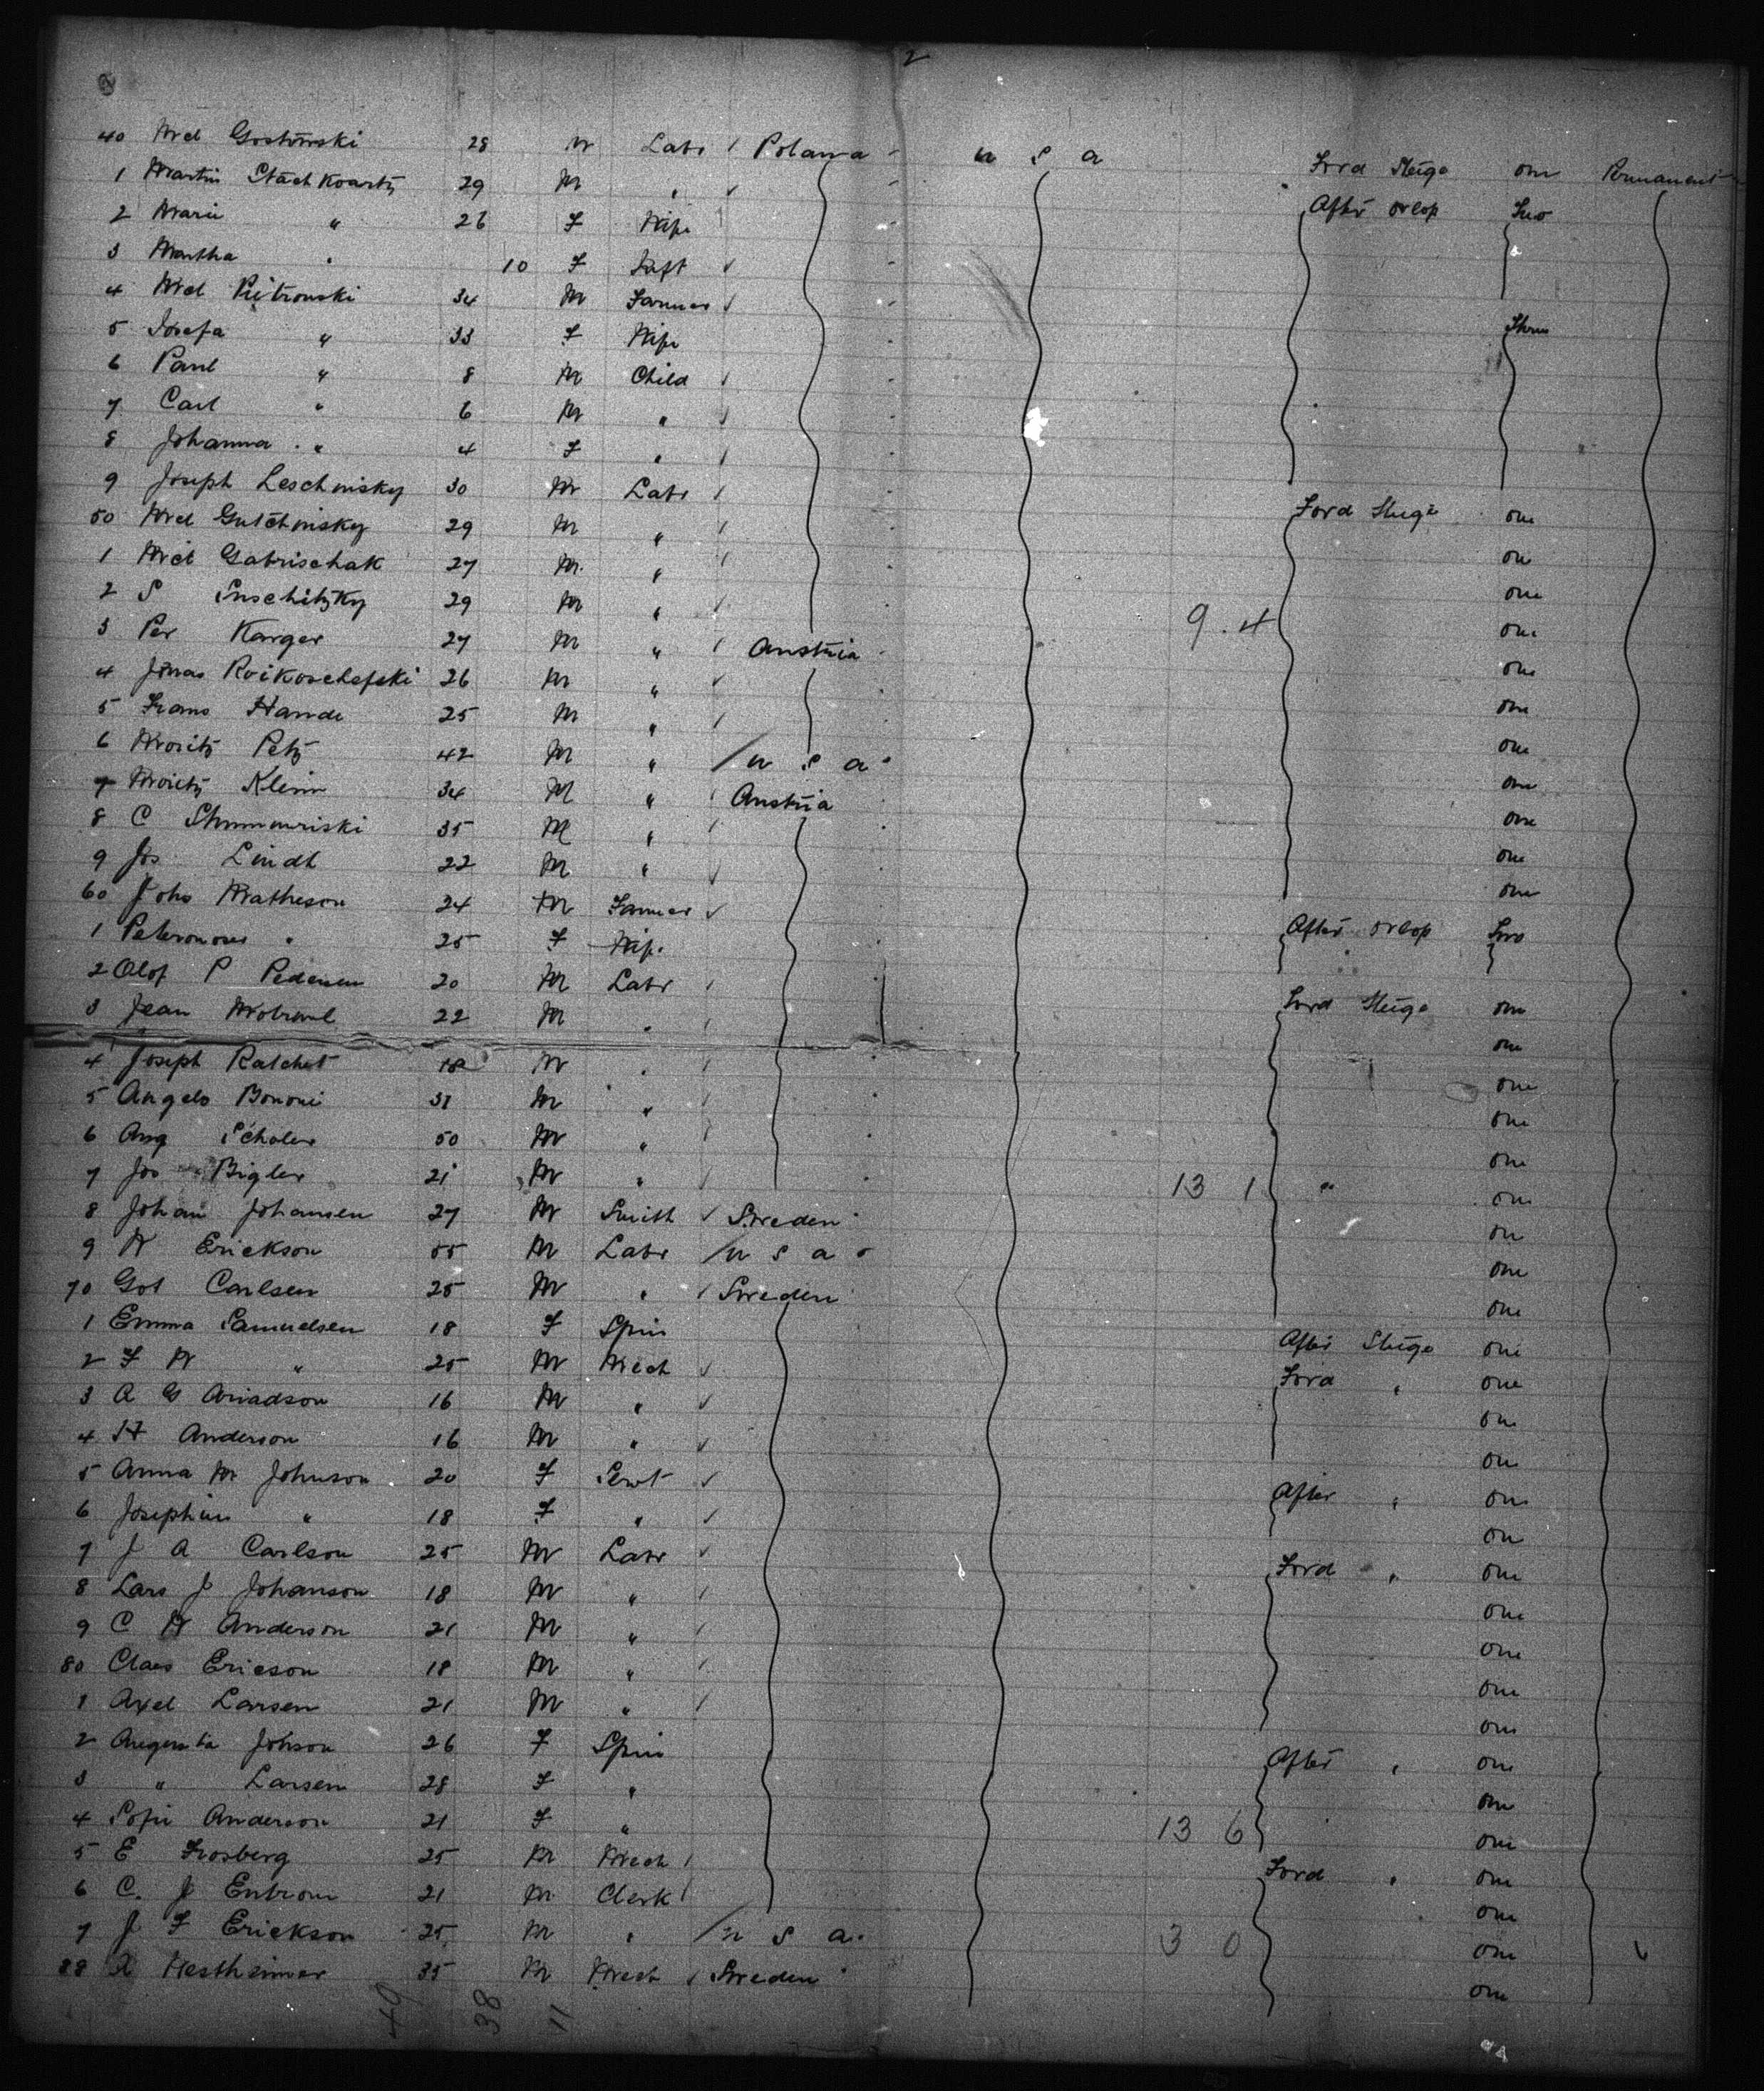 2
40 Mch Gostowski 28 M Labr Polana U S A Ford Steige one Permanent
1 Martin 29 M " After orlop Two
2 Marie " 26 F Wife
3 Martha " 10 F Inft
4 Mch Pietrowski 34 M Farmer
5 Josefa " 33 F Wife Three
6 Paul " 8 M Child
7 Carl " 6 M "
8 Johanna " 4 F "
9 Joseph Leschnisky 30 M Labr Ford Steige one
50 Mch Gutchnisky 29 M " one
1 Mch Gabrischak 27 M " one
2 S 29 M " one
3 Per Karger 27 M " Austria 9.4 one
4 Jonas Roikoschefski 26 M " one
5 Frans Hande 25 M " one
6 Moritz Petz 42 M " U S A one
7 Moritz Klein 34 M " Austria one
8 C 35 M " one
9 Jos Lindt 22 M " one
60 Johs Matheson 24 M Farmer After orlop Two
1 " 25 F Wife
2 Olof P Pedersen 20 M Labr Ford Steige one
3 Jean 22 M " one
4 Joseph Ratchet 18 M " one
5 Angelo Bononi 31 M " one
6 Aug Scholer 50 M " one
7 Jos Bigler 21 M " 13 1 " one
8 Johan Johansen 27 M Smith Sweden one
9 N Erickson 55 M Labr U S A one
70 Got Carlsen 25 M " Sweden one
1 Emma Samuelsen 18 F Spin After Steige one
2 F W " 25 M Mech Ford " one
3 A G 16 M " one
4 H Anderson 16 M " one
5 Anna M Johnson 20 F Servt After " one
6 Josephine " 18 F " one
7 J A Carlson 25 M Labr Ford " one
8 Lars J Johanson 18 M " one
9 C W Anderson 21 M " one
80 Claes Ericson 18 M " one
1 Axel Larsen 21 M " one
2 Augusta Johson 26 F Spin After " one
3 " Larsen 28 F " one
4 Sofie Anderson 21 F " 13 6 one
5 E Frosberg 25 M Mech Ford " one
6 C. J Enbrom 21 M Clerk one
7 J F Erickson 25 M " U S A 3 0 one
88 A Hestheimer 35 M Mech Sweden one
49 38 11